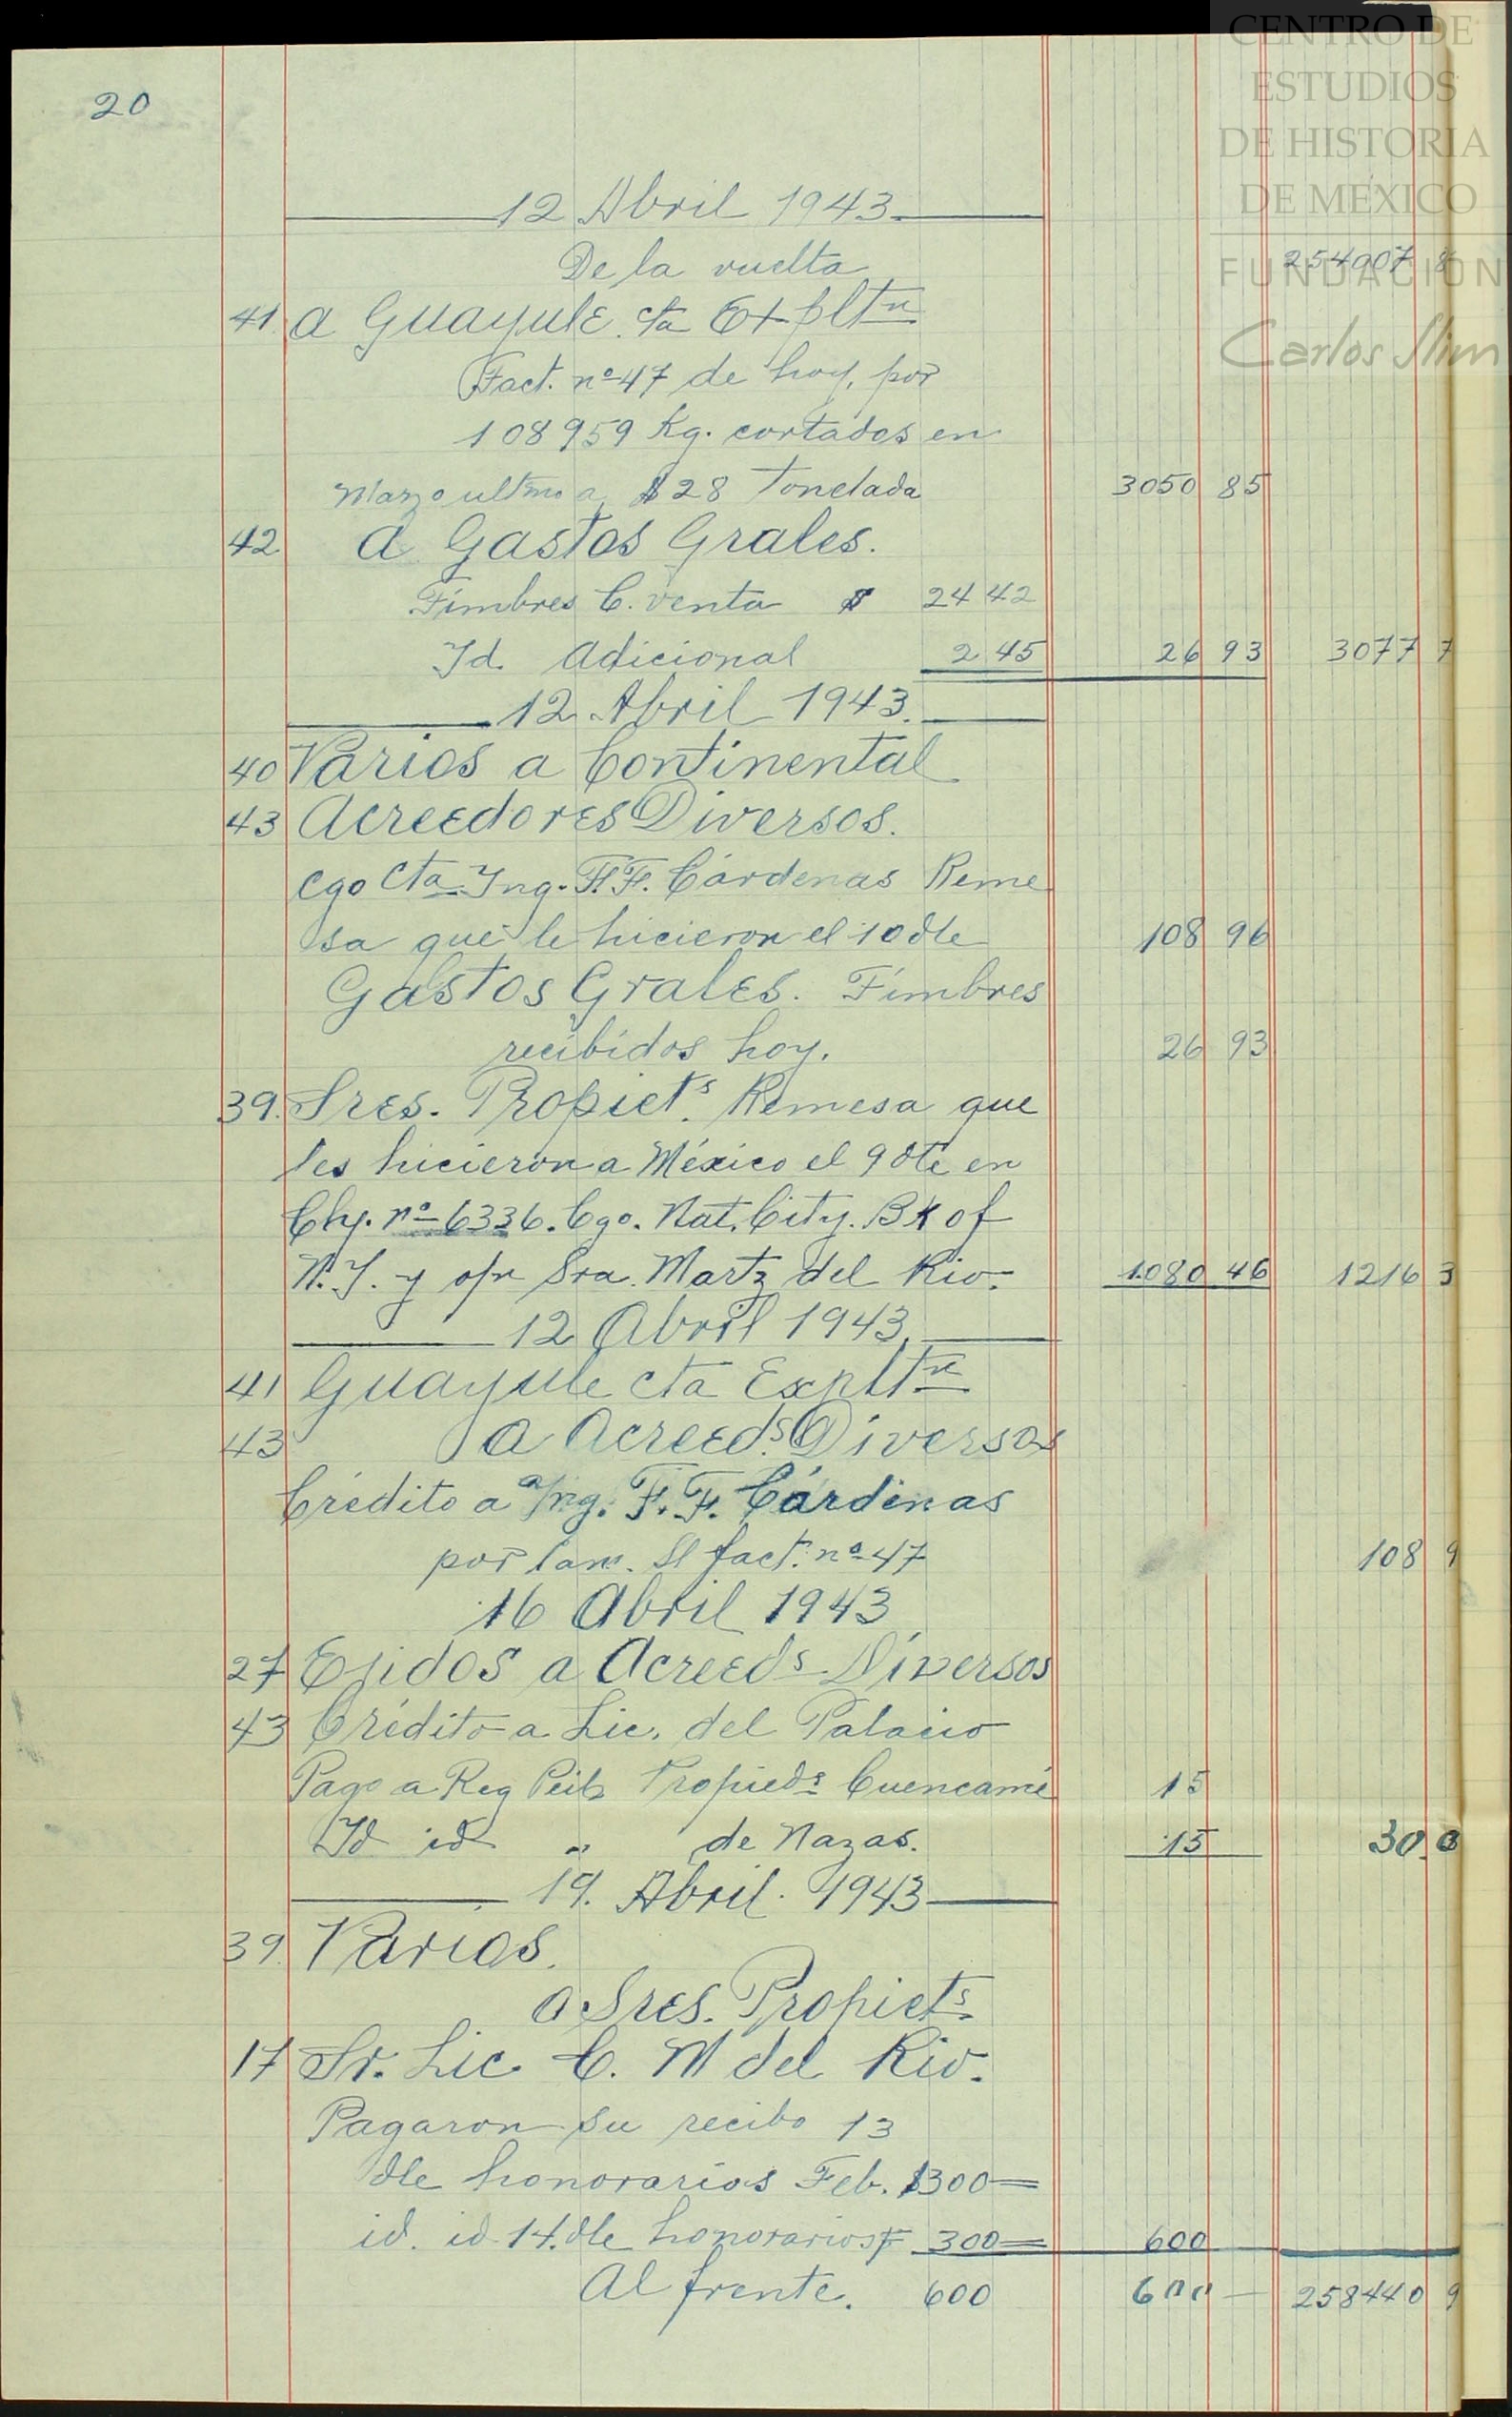 CENTRO DE
ESTUDIOS
DE HISTORIA
DE MÉXICO
FUNDACIÓN
Carlos Slim
20
12 Abril 1943
De la vuelta 254007 8
41. a Guayule cta Expltn
Fact. nº 47 de hoy, por
108959 Kg. cortados en
Marzo ultmo a $28 Tonelada 3050 85
42 a Gastos Grales.
Timbres C. venta $ 24 42
Id. Adicional 2 45 26 93 3077 7
12 Abril 1943.
40 Varios a Continental
43 Acreedores Diversos.
Cgo Cta Ing. F.F. Cárdenas Reme
sa que le hicieron el 10 dle 108 96
Gastos Grales. Timbres
recibidos hoy. 26 93
39. Sres. Propiets. Remesa que
les hicieron a México el 9 dte en
Chq. nº 6336. Cgo. Nat. City. Bk of
N.Y. y o/n Sra. Martz del Rio. 1080 46 1216 3
12 Abril 1943
41 Guayule cta Expltn
43 a Acreeds. Diversos
Crédito a Ing. F. F. Cárdenas
por fact. nº 47 108 9
16 Abril 1943
27 Ejidos a Acreeds Diversos
43 Crédito a Lic. del Palacio
Pago a Reg Propieds Cuencamé 15
Id id " de Nazas. 15 30. 0
19. Abril. 1943
39. Varios.
a Sres. Propiets.
17 Sr. Lic C. M del Rio.
Pagaron su recibo 13
dle honorarios Feb. $300=
id. id 14. dle honorarios 300= 600
Al frente. 600 600 — 258440 9